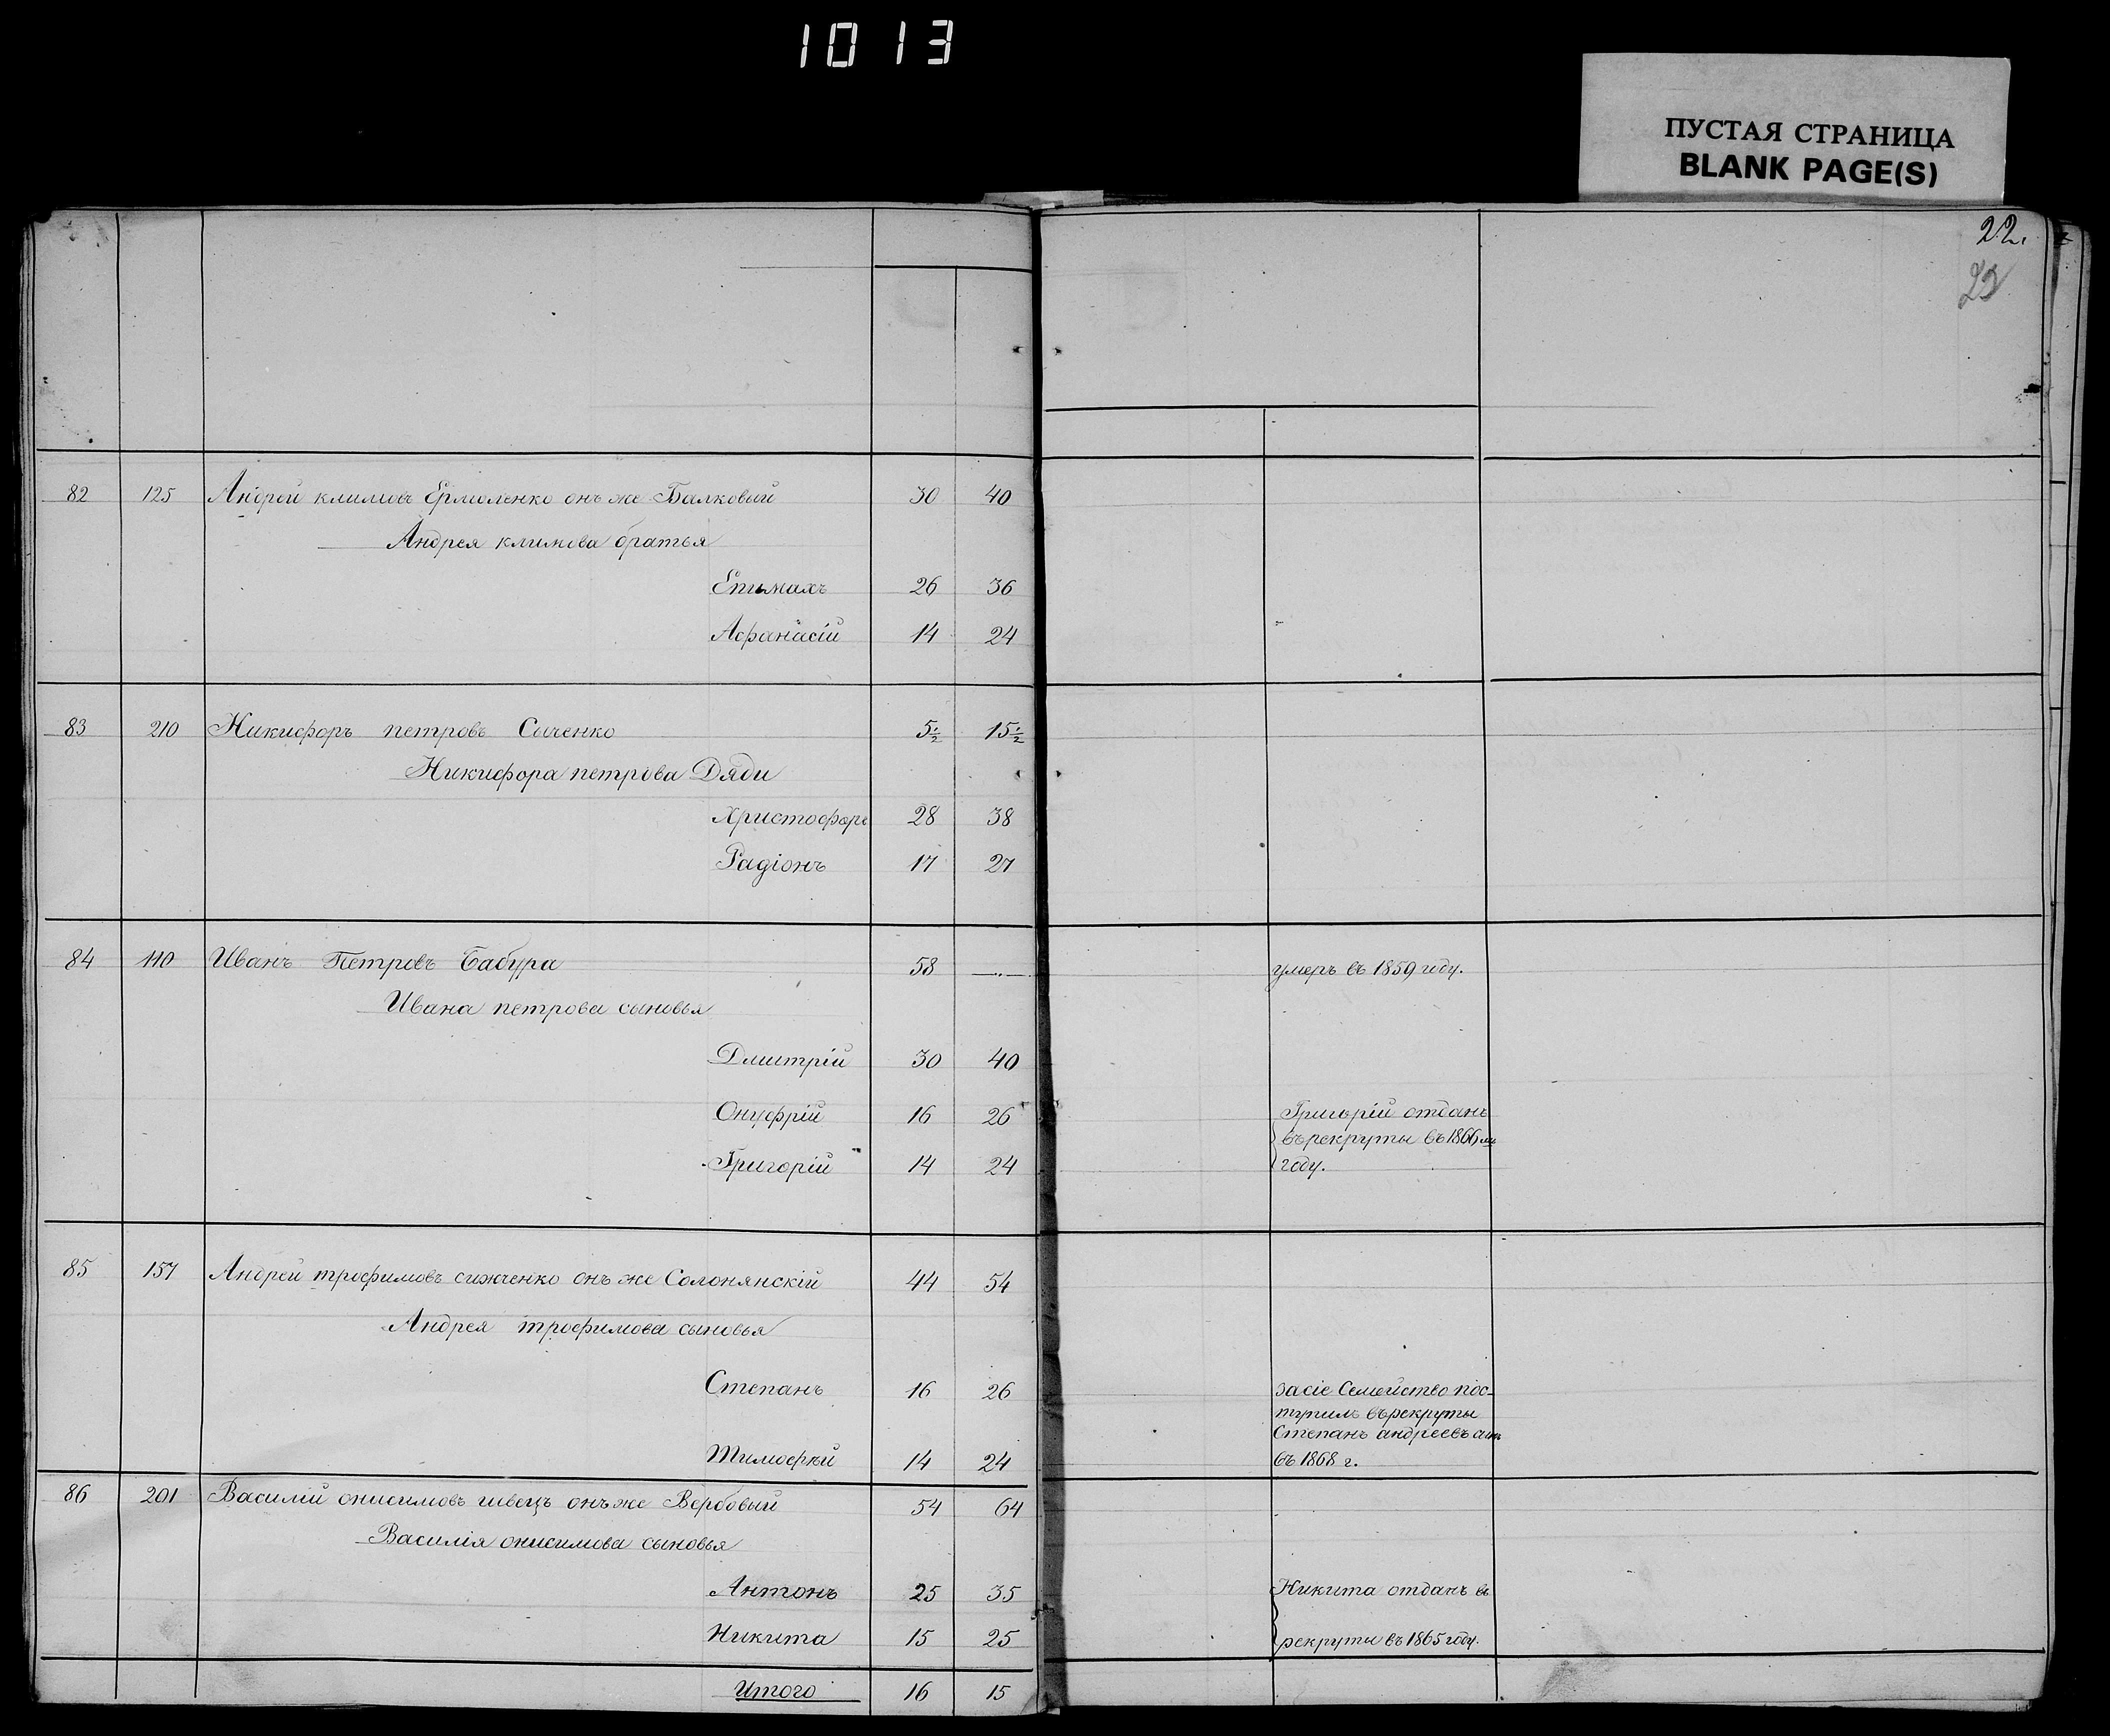 1013
ПУСТАЯ СТРАНИЦА
BLANK PAGE(S)
22.
22
82 125 Андрей климовъ Ермоленко онъ же Балковый 30 40
Андрея климова братья
Епимахъ 26 36
Афанасій 14 24
83 210 Никифоръ петровъ Сыченко 5½ 15½
Никифора петрова Дяди
Христофоръ 28 38
Радіонъ 17 27
84 110 Иванъ Петровъ Бабура 58 —.— умеръ въ 1859 году.
Ивана петрова сыновья
Дмитрій 30 40
Онуфрій 16 26 Григорій отданъ
въ рекруты въ 1866 м
Григорій 14 24 году.
85 157 Андрей трофимовъ сижченко онъ же Солонянскій 44 54
Андрея трофимова сыновья
Степанъ 16 26 за сіе Семейство пос-
тупилъ въ рекруты
Степанъ андреевъ
Тимофей 14 24 въ 1868 г.
86 201 Василій онисимовъ швецъ онъ же Вербовый 54 64
Василія онисимова сыновья
Антонъ 25 35 Никита отданъ въ
Никита 15 25 рекруты въ 1865 году.
Итого 16 15